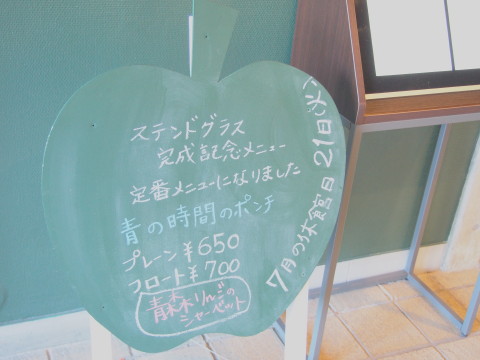 ステンドグラス
完成記念メニュー
定番メニューになりました
青の時間のポンチ
プレーン¥650
フロート¥700
青森りんごの
シャーベット
7月の休館日 21日(火)